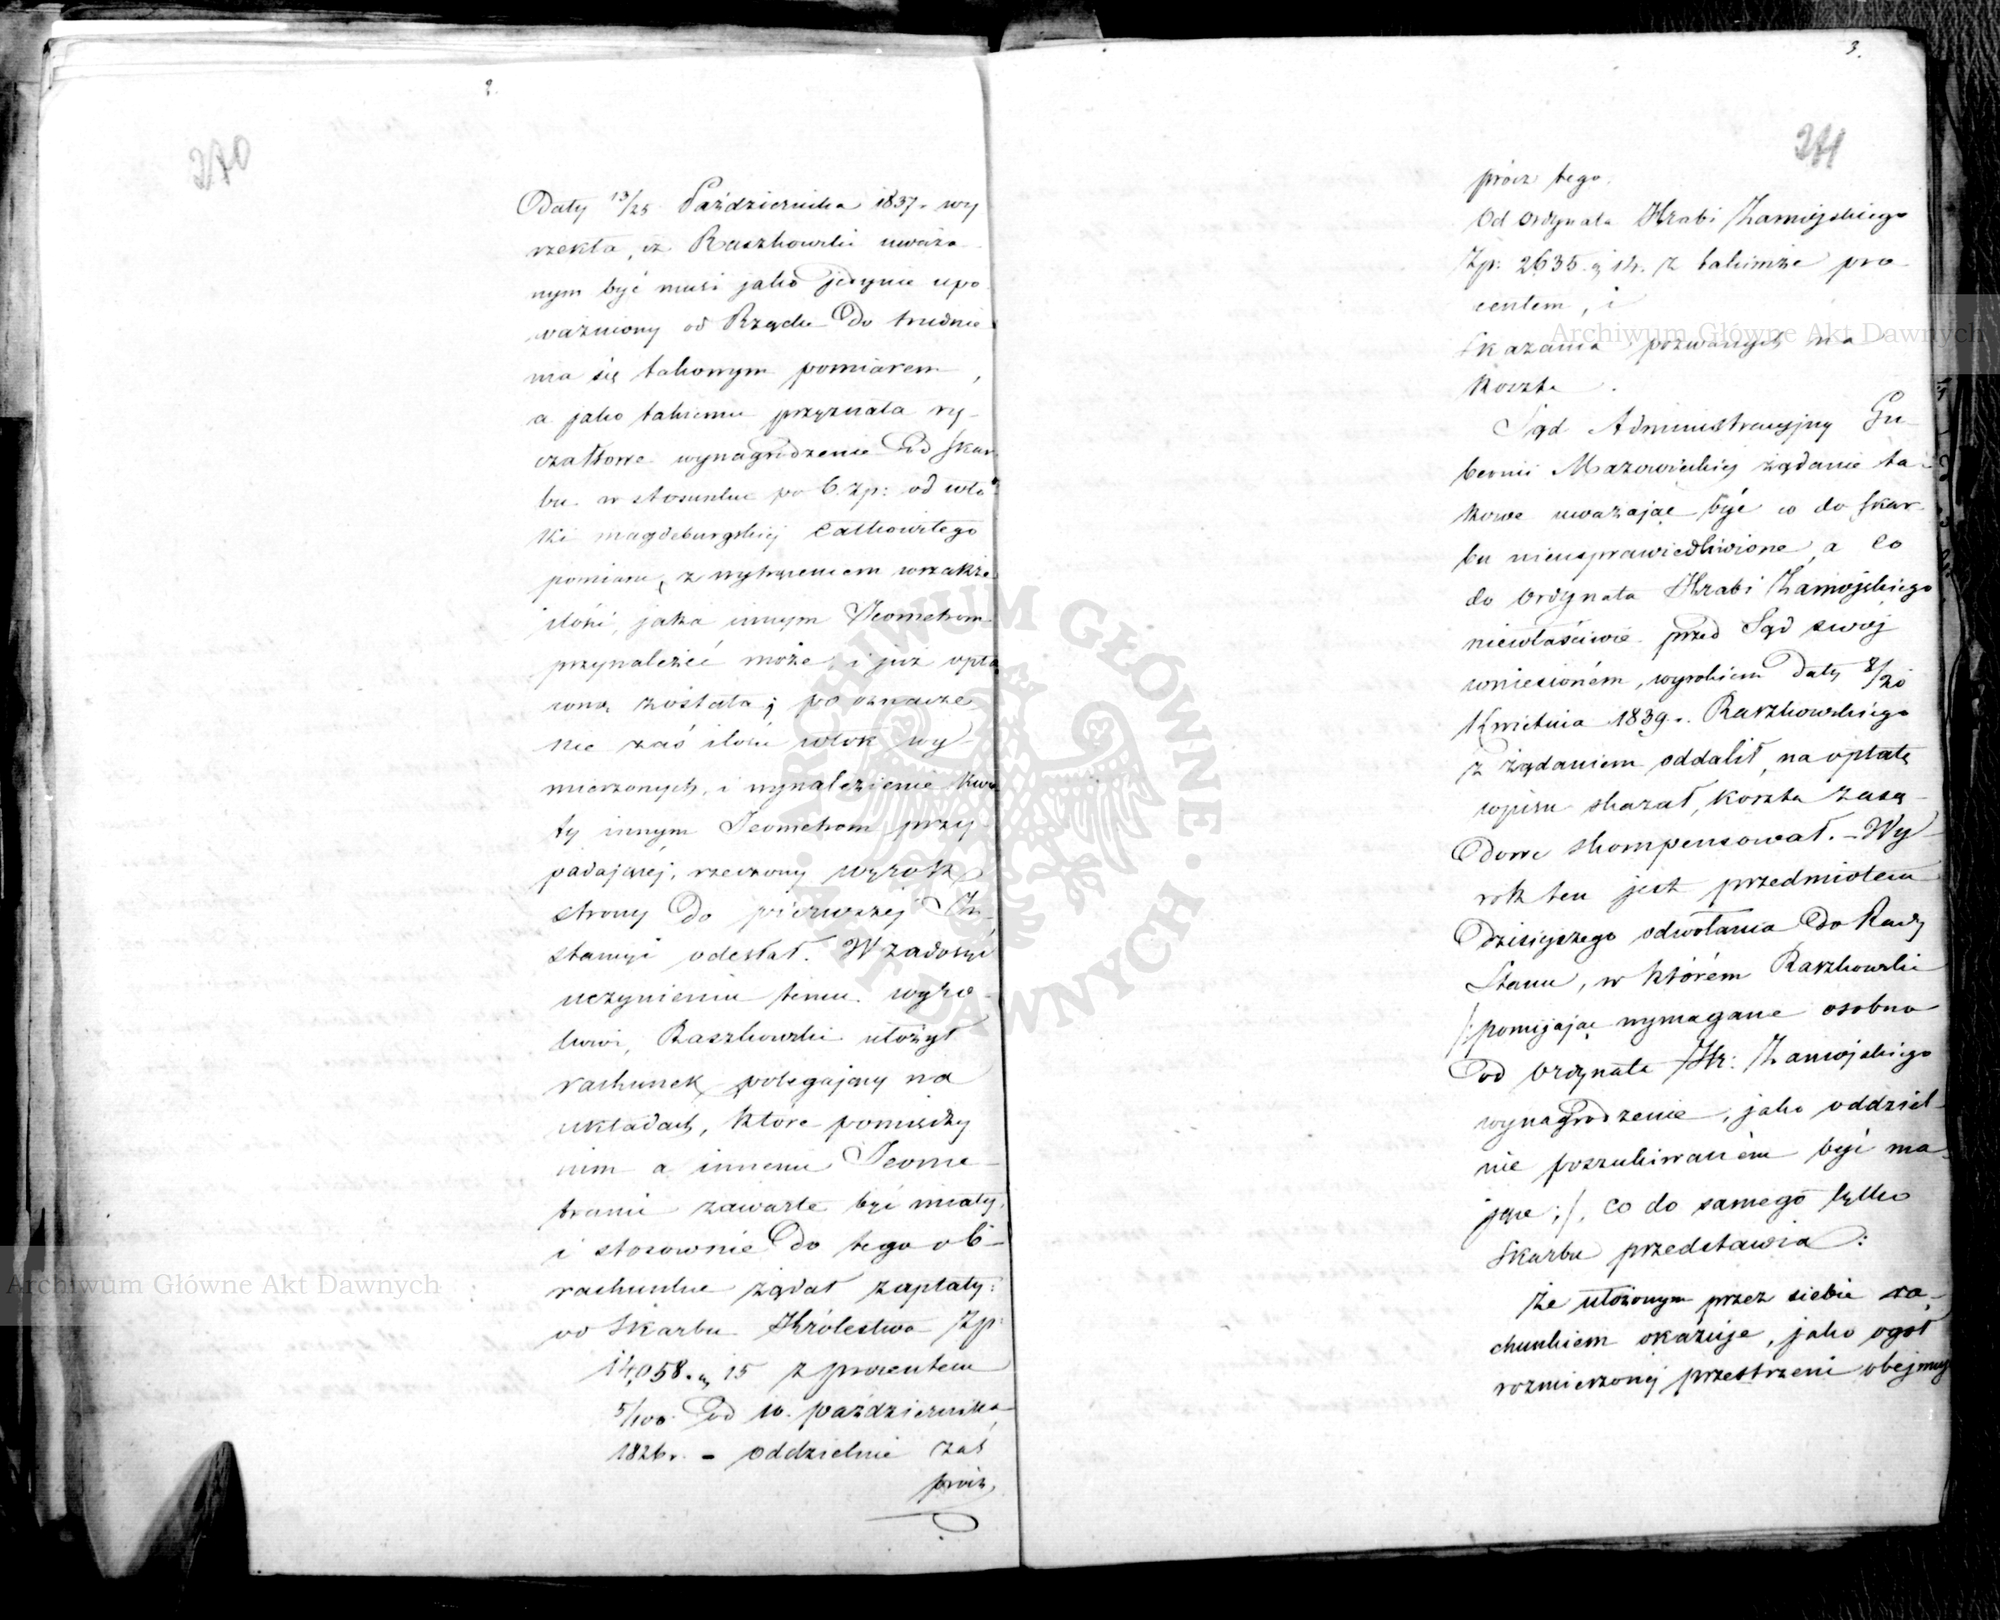 2.
270
Daty 13/25 Października 1837. wy
rzekła, iż Raszkowski uważa
nym być musi jako jedynie upo
ważniony od Rządu do trudnie
nia się takowym pomiarem,
a jako takiemu przyznała ry-
czałtowe wynagrodzenie od Skar
bu w stosunku po 6. Zp: od włó
ki magdeburgskiej całkowitego
pomiaru, z wytrąceniem wszakże
ilości, jaka innym Jeometrom
przynależeć może, i już opła
coną została; po oznacze
nie zaś ilości włók wy
mierzonych, i wynalezienie kwo
ty innym Jeometrom przy
padającej, rzeczony wyrok
strony do pierwszej In
stancyi odesłał. W zadosyć
uczynieniu temu wyro-
kowi, Raszkowski ułożył
rachunek polegający na
układach, które pomiędzy
nim a innemi Jeome-
trami zawarte być miały,
i stosownie do tego ob-
rachunku żądał zapłaty:
od Skarbu Królestwa Zp:
14,058. g 15 z procentem
5/100. od 10. października
1826 r. - oddzielnie zaś
prócz
3.
271
prócz tego.
Od Ordynata Hrabi Zamojskiego
Zp: 2635. g 14. z takimże pro
centem, i
Skazania pozwanych na
koszta.
Sąd Administracyjny Gu-
bernii Mazowieckiej żądanie ta-
kowe uważając być co do Skar
bu nieusprawiedliwione, a co
do Ordynata Hrabi Zamojskiego
niewłaściwie przed Sąd swój
wniesioném, wyrokiem daty 8/20
Kwietnia 1839 r. Raszkowskiego
z żądaniem oddalił, na opłatę
wpisu skazał, koszta zasą-
dowe skompensował. - Wy
rok ten jest przedmiotem
dzisiejszego odwołania do Rady
Stanu, w którém Raszkowski
/: pomijając wymagane osobno
od Ordynata Hr: Zamojskiego
wynagrodzenie, jako oddziel-
nie poszukiwaniem być ma-
jące :/, co do samego tylko
Skarbu przedstawia:
że ułożonym przez siebie ra-
chunkiem okazuje, jako ogół
rozmierzonej przestrzeni obejmuj
ARCHIWUM GŁÓWNE AKT DAWNYCH
Archiwum Główne Akt Dawnych
Archiwum Główne Akt Dawnych